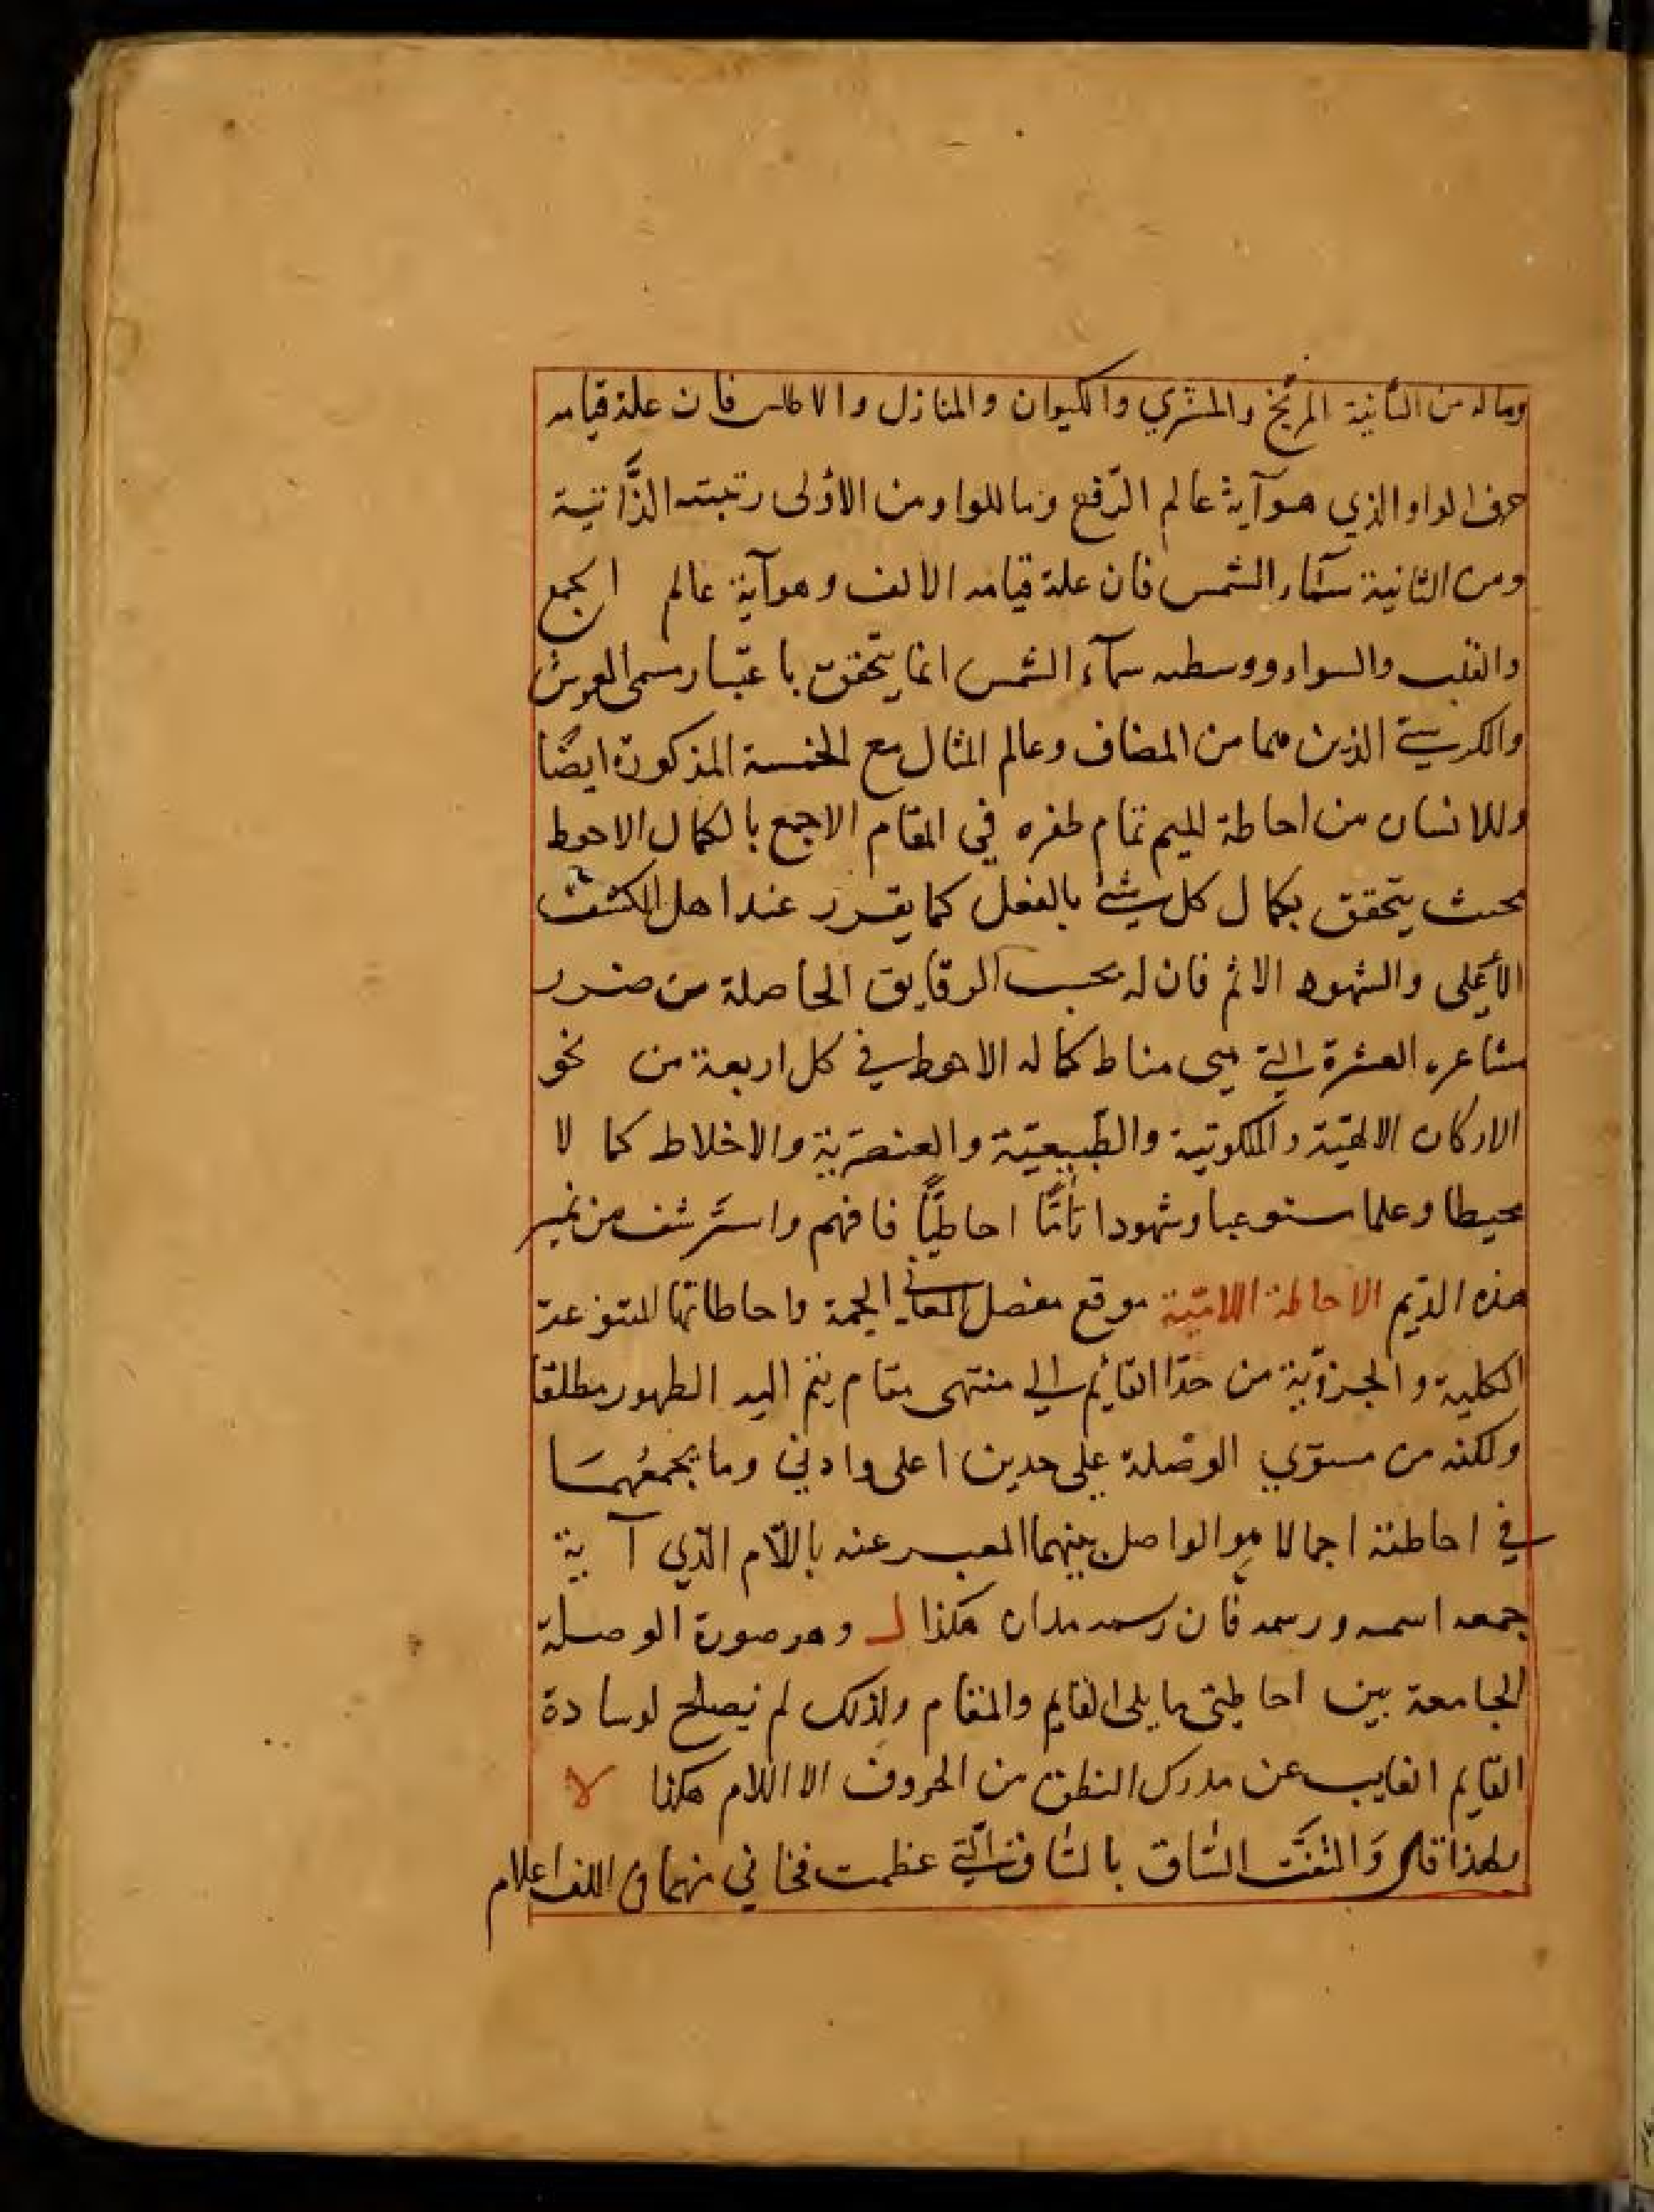 وماله من الثانية المريخ والمشتري والكيوان والمنازل والاطلس فان علة قيامه
حرف الواو الذي هو آية عالم الرفع وما للواو من الاولى رتبته الذاتية
ومن الثانية سماء الشمس فان علة قيامه الالف وهو آية عالم الجمع
والقلب والسواء ووسطه سمآء الشمس انما يتحقق باعتبار مسمى العرش
والكرسي الذين هما من المضاف وعالم المثال مع الخمسة المذكورة ايضًا
وللانسان من احاطة الميم تمام ظفره في المقام الاجمع بالكمال الاحوط
بحيث يتحقق بكمال كل شئ بالفعل كما يقرر عند اهل الكشف
الأعلى والشهود الاتم فان له بحسب الرقايق الحاصلة من ضرب
مشاعره العشرة التي هي مناط كماله الاحوط في كل اربعة من نحو
الاركان الالهيّة والملكوتية والطّبيعيّة والعنصريّة والاخلاط كما لا
محيطا وعلما مستوعبا وشهودا تامًّا احاطيًّا فافهم واسترشف من نمير
هذه الديم الاحاطة اللاميّة موقع مفصل المعاني الجمة واحاطاتها المتنوعة
الكلية والجزوّية من حدّ القائم الى منتهى مقام ينم اليه الظهور مطلقا
ولكنه من مستوي الوصلة على حدين اعلى وادني وما يجمعُهمَا
في احاطته اجمالا هو الواصل بينهما المعبر عنه باللّام الذي آية
جمعه اسمه ورسمه فان رسمه مدان هكذا لـ وهو صورة الوصلة
الجامعة بين احاطتي ما يلى القايم والمقام ولذلك لم يصلح لوسادة
القايم الغايب عن مدرك النطق من الحروف الا اللام هكذا لا
ولهذا قال وَالتفَّت السَّاق بالسَّاق التي عظمت فخافي منهما في اللف اعلام